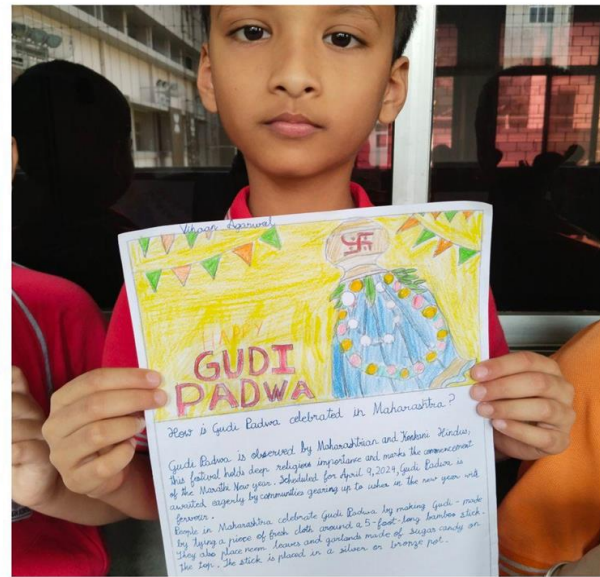 Vihaan Agarwal
GUDI
PADWA
How is Gudi Padwa celebrated in Maharashtra?
Gudi Padwa is observed by Maharashtrian and Konkani Hindus,
this festival holds deep religious importance and marks the commencement
of the Marathi New year. Scheduled for April 9, 2024, Gudi Padwa is
awaited eagerly by communities gearing up to usher in the new year with
fervour.
People in Maharashtra celebrate Gudi Padwa by making Gudi - made
by tying a piece of fresh cloth around a 5-foot-long bamboo stick.
They also place neem leaves and garlands made of sugar candy on
the top. The stick is placed in a silver or bronze pot.